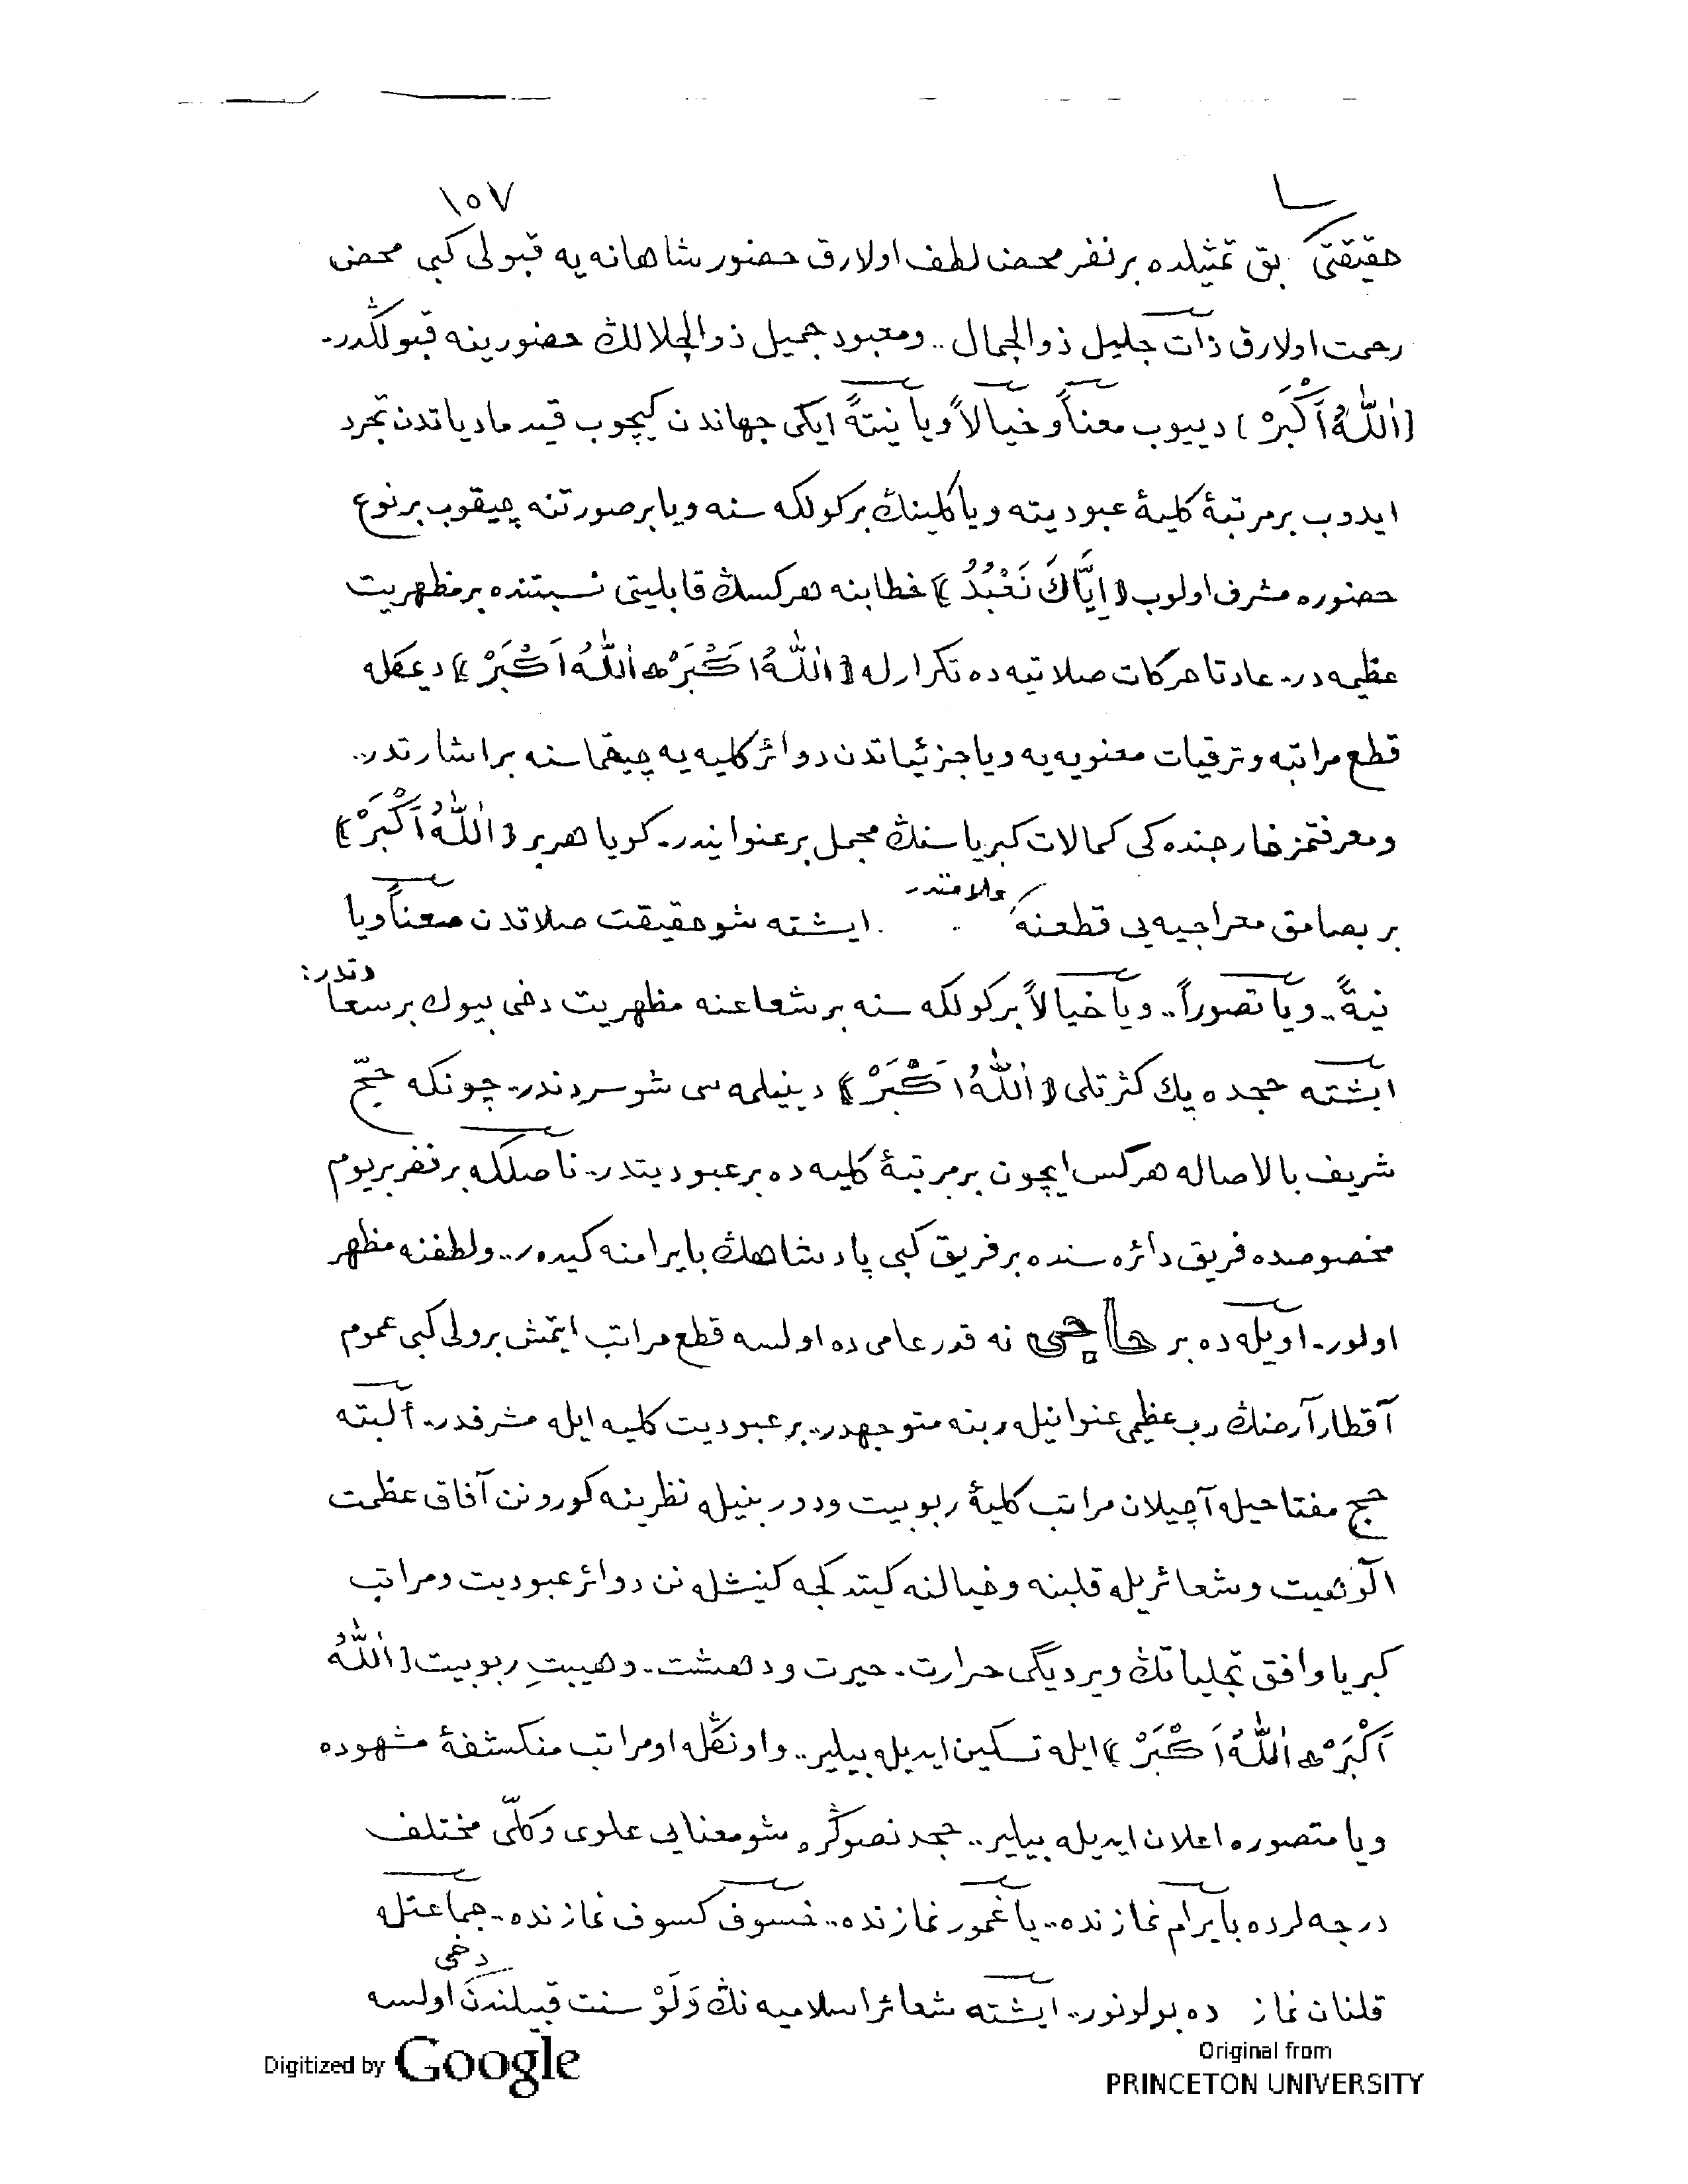 ١٥٧
حقيقتى بق تمثيلده بر نفر محض لطف اولارق حضور شاهانه يه قبولى كبى محض
رحمت اولارق ذات جليل ذوالجمال.. ومعبود جميل ذوالجلالڭ حضورينه قبولڭدر.
{اَللّٰهُ اَكْبَرْ} دييوب معناً وخيالاً ويا نيتةً ايكى جهاندن كيچوب قيد مادياتدن تجرد
ايدوب بر مرتبۀ كليۀ عبوديته ويا كلينڭ بر كولكه سنه ويا بر صورتنه چيقوب بر نوع
حضوره مشرف اولوب {اِيَّاكَ نَعْبُدُ} خطابنه هركسڭ قابليتى نسبتنده بر مظهريت
عظيمه در. عادتا حركات صلاتيه ده تكرارله {اَللّٰهُ اَكْبَرْ ٭ اَللّٰهُ اَكْبَرْ} ديمكله
قطع مراتبه وترقيات معنويه يه ويا جزئياتدن دوائر كليه يه چيقماسنه بر اشارتدر..
ومعرفتمز خارجنده كى كمالات كبرياسنڭ مجمل بر عنوانيدر. كويا هر بر {اَللّٰهُ اَكْبَرْ}
بر بصامق معراجيه يى قطعنه دلالاتدر. ايشته شو حقيقت صلاتدن معناً ويا
نيةً.. ويا تصوراً.. ويا خيالاً بر كولكه سنه بر شعاعنه مظهريت دخى بيوك بر سعادتدر:
ايشته حجده پك كثرتلى {اَللّٰهُ اَكْبَرْ} دينيلمه سى شو سردندر. چونكه حجّ
شريف بالاصاله هركس ايچون بر مرتبۀ كليه ده بر عبوديتدر. ناصلكه بر نفر بر يوم
مخصوصده فريق دائره سنده بر فريق كبى پادشاهڭ بايرامنه كيدور.. ولطفنه مظهر
اولور. اويله ده بر حاجى نه قدر عامى ده اولسه قطع مراتب ايتمش بر ولى كبى عموم
آقطار آرضڭ رب عظيمى عنوانيله ربنه متوجهدر. بر عبوديت كليه ايله مشرفدر. ألبته
حج مفتاحيله آچيلان مراتب كليۀ ربوبيت ودوربينيله نظرينه كورونن آفاق عظمت
الوهيت وشعائريله قلبنه وخيالنه كيتدكجه كنيشلەنن دوائر عبوديت ومراتب
كبريا وافق تجلياتڭ ويرديگى حرارت. حيرت ودهشت. وهيبتِ ربوبيت {اَللّٰهُ
اَكْبَرْ ٭ اَللّٰهُ اَكْبَرْ} ايله تسكين ايديله بيلير.. واونڭله او مراتب منكشفۀ مشهوده
ويا متصوره اعلان ايديله بيلير.. حجدنصوڭره شو معنايى علوى وكلّى مختلف
درجه لرده بايرام نمازنده.. ياغمور نمازنده.. خسوف كسوف نمازنده.. جماعتله
قلنان نماز ده بولونور.. ايشته شعائر اسلاميه نڭ وَلَوْ سنت قبيلندن دخى اولسه
Digitized by Google
Original from
PRINCETON UNIVERSITY